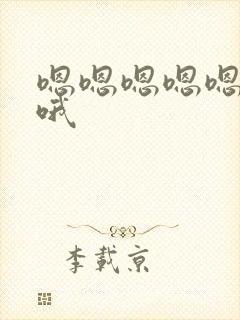 嗯嗯嗯嗯嗯
哦
李載京